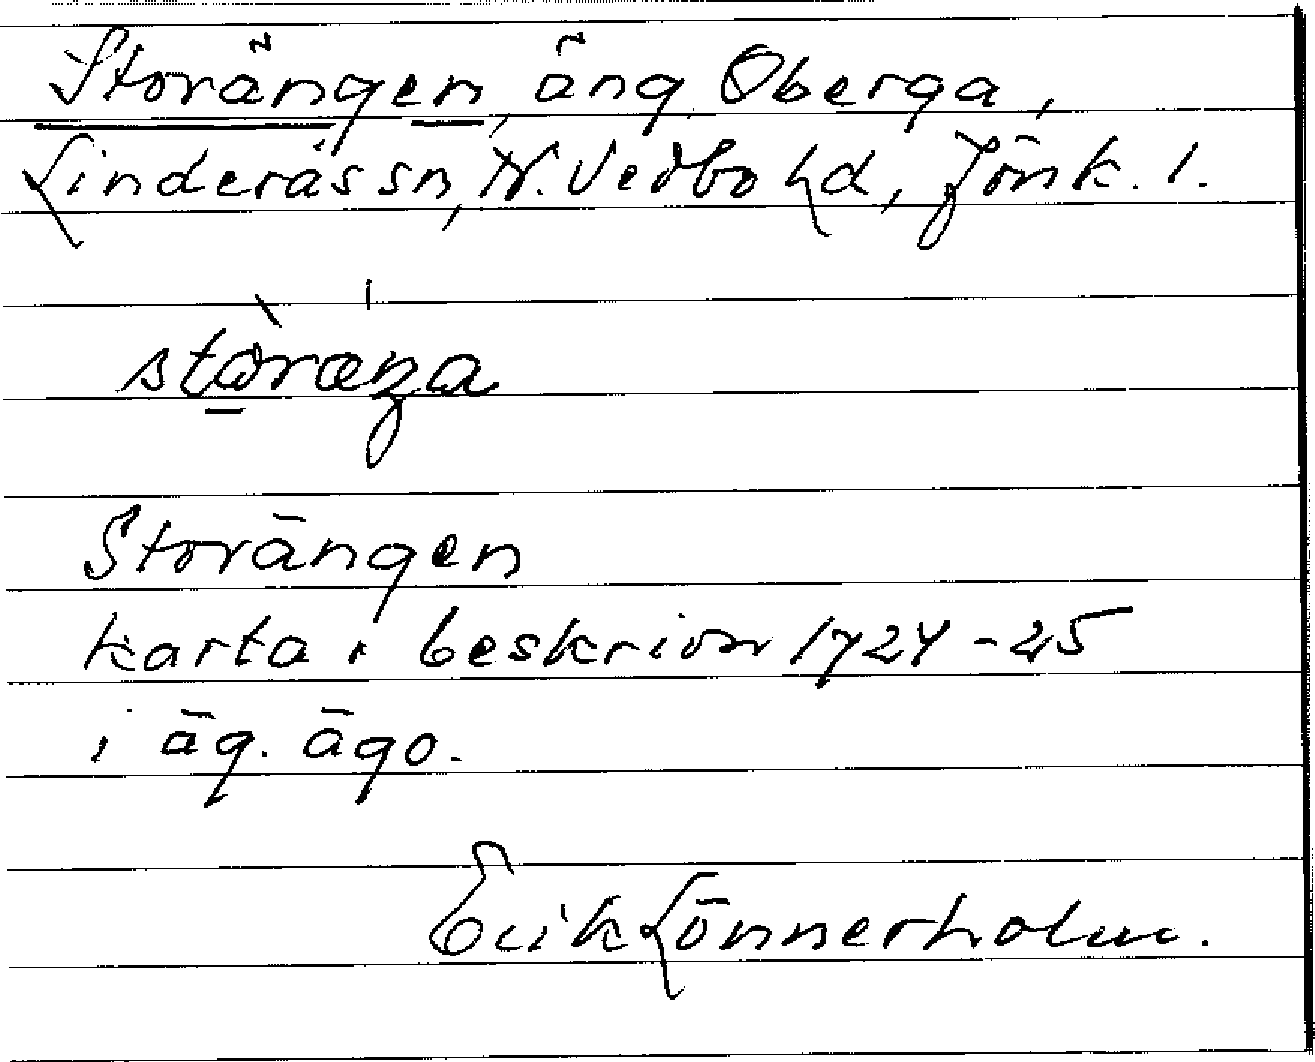 Storängen, äng, Oberga,
Linderås sn, N. Vedbo hd, Jönk. l.
Storängen
karta i beskrivn 1724-25
i äg. ägo.
Erik Lönnerholm.